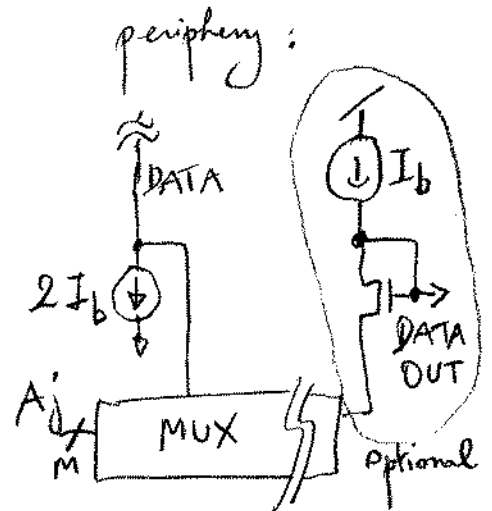 periphery :
DATA
I_b
2 I_b
DATA
OUT
A_j
M
MUX
optional